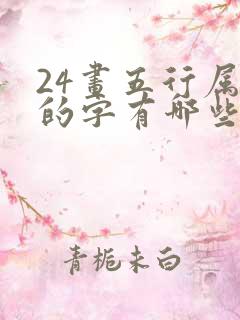 24畫五行属
的字有哪些
青栀未白